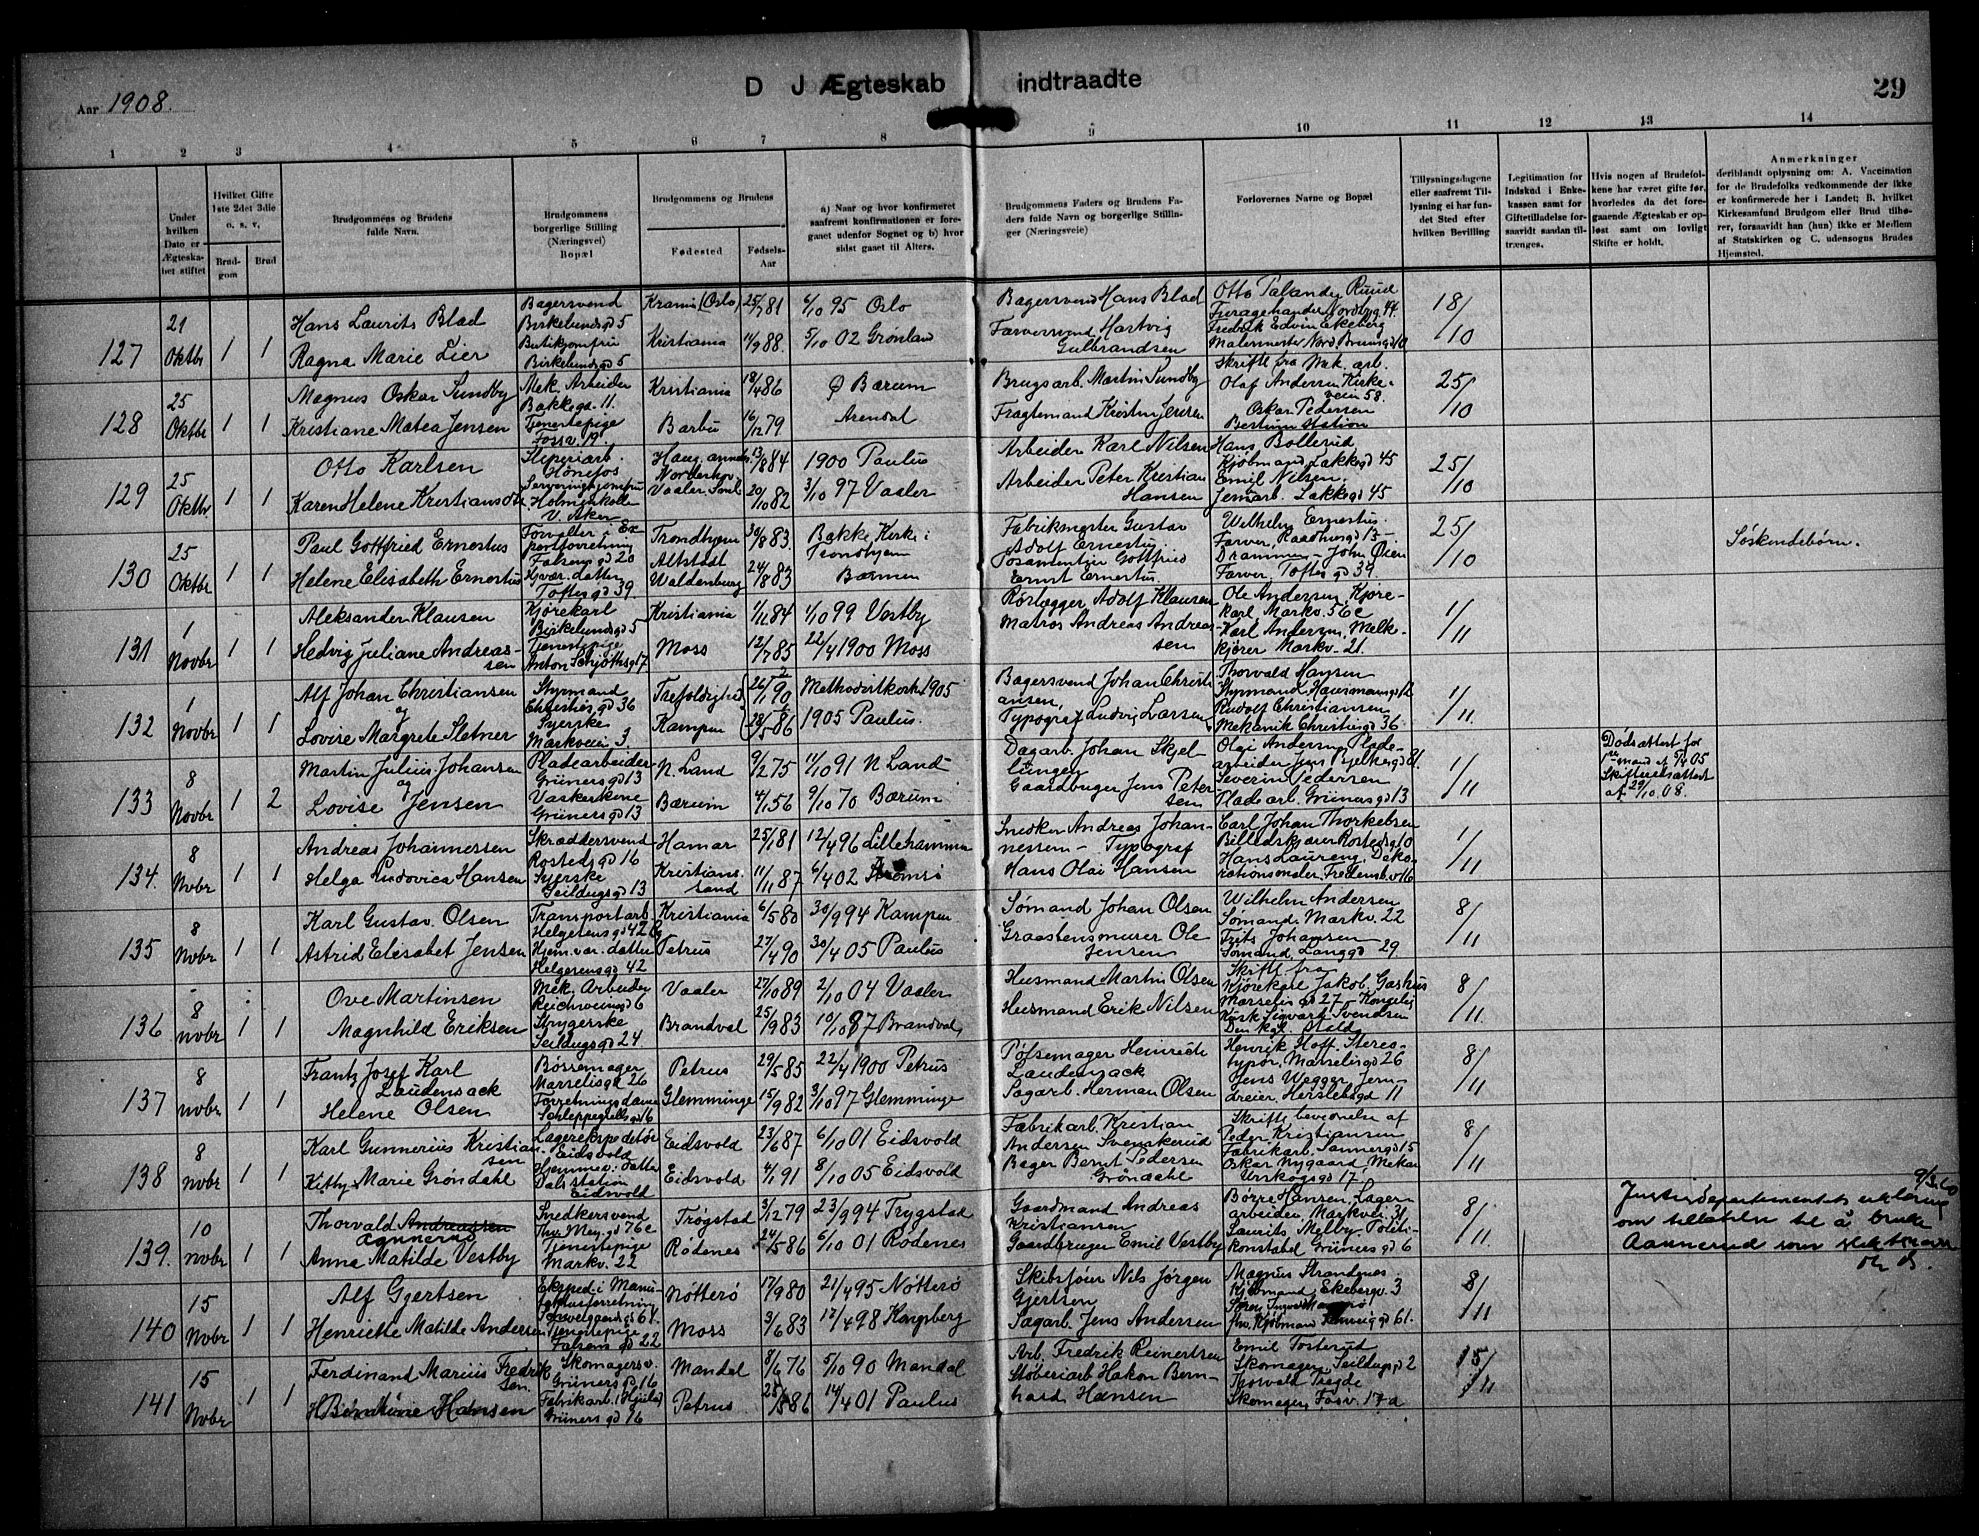 Aar 1908.
D J Ægteskab indtraadte
29
1 2 3 4 5 6 7 8 9 10 11 12 13 14
Under hvilken Dato er Ægteskabet stiftet
Hvilket Gifte 1ste 2det 3die o. s. v,
Brudgom
Brud
Brudgommens og Brudens fulde Navn.
Brudgommens borgerlige Stilling (Næringsvei) Bopæl
Brudgommens og Brudens
Fødested
Fødsels-Aar
a) Naar og hvor konfirmeret saafremt konfirmationen er foregaaet udenfor Sognet og b) hvor sidst gaaet til Alters.
Brudgommens Faders og Brudens Faders fulde Navn og borgerlige Stillinger (Næringsveie)
Forlovernes Navne og Bopæl
Tillysningsdagene eller saafremt Tillysning ei har fundet Sted efter hvilken Bevilling
Legitimation for Indskud i Enkekassen samt for Giftetilladelse forsaavidt saadan tiltrænges.
Hvis nogen af Brudefolkene har været gifte før, hvorledes da det foregaaende Ægteskab er opløst samt om lovligt Skifte er holdt.
Anmerkninger deriblandt oplysning om: A. Vaccination for de Brudefolks vedkommende der ikke er konfirmerede her i Landet; B. hvilket Kirkesamfund Brudgom eller Brud tilhører, forsaavidt han (hun) ikke er Medlem af Statskirken og C. udensogns Brudes Hjemsted.
127 21 Oktbr 1 1
Hans Laurits Blad Bagersvend Birkelundsgd 5 Krania (Oslo) 25/7 81 6/10 95 Oslo Bagersvend Hans Blad Otto Palander Ruud 18/10
Ragna Marie Lier Butikjomfru Birkelundsgd 5 Kristiania 88. 5/10 02 Grønland Farversvend Hartvig Gulbrandsen Fredrik Edvin Ekeberg Malermester
128 25 Oktbr 1 1
Magnus Oskar Sundby Mek. Arbeider Bakkegd. 11. Kristiania 18/4 86 Bærum Brugsarb. Martin Sundby Skriftl fra Mek. arb. Olaf Andersen Kirkeveien 58. 25/10
Kristiane Matea Jensen Tjenestepige Barbu 16/12 79 Arendal Fragtemand Kristen Jensen Oskar Pedersen Bestum Station
129 25 Oktbr 1 1
Otto Karlsen Sliperiarb. Hønefos 13/8 84 1900 Paulus Arbeider Karl Nilsen Hans Bollerud Kjøbmand, Lakkegd 45 25/10
Karen Helene Kristians Holmenkollen V. Aker Vaaler 20/10 82 3/10 97 Vaaler Arbeider Peter Kristian Hansen Emil Nilsen, Jernarb. Lakkegd 45
130 25 Oktbr 1 1
Paul Gottfried Ernestus Forvalter i Exportforretning Falsensgd 20 Trondhjem 30/8 83. Bakke Kirke i Trondhjem Fabrikmester Gustav Adolf Ernestus. Wilhelm Ernestus. Farver, Raadhusgd 13 – Drammen – 25/10 Søskendebørn.
Helene Elisabeth Ernestus Hjvær. datter Toftes gd 39 Altstadt Waldenburg 24/8 83 Barmen Posamentier Gottfried Ernst Ernestus. John Øien Farver, Toftes gd 39.
131 1 Novbr 1 1
Aleksander Klausen Kjørekarl Birkelundsgd 5 Kristiania 1/11 84 1/10 99 Vestby Rørlægger Adolf Klausen Ole Andersen Kjørekarl, Markv. 56 c 1/11
Hedvig Juliane Andreassen Tjenestepige Anton Schjøthsgd 17 Moss 12/7 85 22/4 1900 Moss Matros Andreas Andreassen Karl Andersen, Melkekjører Markv. 21.
132 1 Novbr 1 1
Alf Johan Christiansen og Styrmand Christiesgd 36 Trefoldighed 90 Methodistkirken 1905 Bagersvend Johan Christiansen, Thorvald Hansen Styrmand Hausmannsgd 12 1/11
Lovise Margrete Sletner Syerske Markveien 3 Kampen 28/5 86 1905 Paulus. Typograf Ludvig Larsen Rudolf Christiansen Mekanik Christiesgd 36
133 8 Novbr 1 2
Martin Julius Johansen og Pladearbeider Grünersgd 13 N. Land 9/2 75 11/10 91 N Land Dagarb. Johan Skjellungen Olai Andersen, Pladearbeider Jens Bjelkesgd 81. 1/11 Dødsattest for 1ste mand af 05 Skifteretsattest af 29/10 08.
Lovise Jensen Vaskerkone Grünersgd 13 Bærum 4/1 56 9/10 70 Bærum Gaardbruger Jens Petersen Severin Pedersen Pladearb. Grünersgd 13
134. 8 Nvbr 1 1
Andreas Johannessen Skræddersvend Rostedsgd 16 Hamar 25/1 81 12/4 96 Lillehammer Snedker Andreas Johannessen – Carl Johan Thorkelsen Billedskjærer Rostedsgd 10 1/11
Helga Ludovica Hansen Syerske Seildugsgd 13 Kristianssand 11/11 87 6/4 02 Strømsø Typograf Hans Olai Hansen Hans Laureng, Dekorationsmaler, Fredensb.v 16
135 8 Nvbr 1 1
Karl Gustav Olsen Transportarb Helgesens gd 42 Kristiania 6/5 80 30/9 94 Kampen Sømand Johan Olsen Wilhelm Andersen Sømand, Markv. 22 8/11
Astrid Elisabet Jensen Hjem. vær. datter Helgesensgd 42 Petrus 27/4 90 30/4 05 Paulus Graastensmurer Ole Jensen Frits Johansen Sømand, Langgd 29
136 8 nvbr 1 1
Ove Martinsen Mek. Arbeider Reichweinsgd 6 Vaaler 27/10 89 2/10 04 Vaaler Husmand Martin Olsen Skriftl fra Kjørekarl Jakob Gashus Marselis gd 27 – 8/11.
Magnhild Eriksen Strygerske Seildugsgd 24 Brandval 25/9 83 10/10 87 Brandval, Husmand Erik Nilsen Kongelig Kusk Sigvart Svendsen Den kgl. Stald
137 8 nvbr 1 1
Frantz Josef Karl Laudensack Bøssemager Marselisgd 26 Petrus 29/5 85 22/4 1900 Petrus Pølsemager Heinrich Laudensack Henrik Hoff, Stereotypør, Marselisgd 26 8/11
Helene Olsen Forretningsdame Schleppegrellsgd 16 Glemminge 15/9 82 3/10 97 Glemminge Sagarb. Herman Olsen Jens Wegger, Jerndreier, Herslebsgd 11
138 8 nvbr 1 1
Karl Gunnerius Kristiansen Lagerexpeditør Eidsvold Eidsvold 23/6 87 6/10 01 Eidsvold Fabrikarb. Kristian Andersen Svenskerud Skriftl bevidnelse af Peder Kristiansen Fabrikarb. Sannergd 15 8/11
Kitty Marie Grøndahl Hjemmev. datter Dal station Eidsvold Eidsvold 4/1 91 8/10 05 Eidsvold Bager Bernt Pedersen Grøndahl Oskar Nygaard, Mekan Urskogsgd 17
139. 10 nvbr 1 1
Thorvald Andreassen Aannerud Snedkersvend Thv. Meyersgd 76 c Trøgstad 3/12 79 23/9 94 Trygstad Gaardmand Andreas Kristiansen Børre Hansen, Lagerarbeider Markvei 31 8/11. 9/3 20 Justisdepartementets erklæring om tillatelse til å bruke Aannerud som slektsnavn
Anna Matilde Vestby Tjenestepige Markv. 22 Rødenes 24/5 86 6/10 01 Rødenes Gaardbruger Emil Vestby Laurits Melby, Politikonstabel Grünersgd 6
140 15 Nvbr 1 1
Alf Gjertsen Ekspedi. i Manufakturforretning Tøvelgaardsgd 61. Nøtterø 17/9 80 21/4 95 Nøtterø Skibsfører Nils Jørgen Gjertsen Magnus Strandnes Kjøbmand, Ekebergv. 3 8/11
Henriette Matilde Andersen Tjenestepige Falsens gd 22 Moss 3/6 83 17/4 98 Kongsberg Sagarb. Jens Andersen fhv. Kjøbmand gd 61.
141 15 Nvbr 1 1
Ferdinand Marius Fredriksen. Skomagersv. Grünersgd 16 Mandal 8/6 76 5/10 90 Mandal Arb. Fredrik Reinertsen Emil Fosterud Skomager, Seildugsgd 2 15/11
Berntine Hansen Fabrikarb. (Hjula) Grünersgd 16 Petrus 25/5 86 14/4 01 Paulus Støberiarb Hakon Bernhard Hansen Thorvald Tregde Skomager, Fosv. 17 a